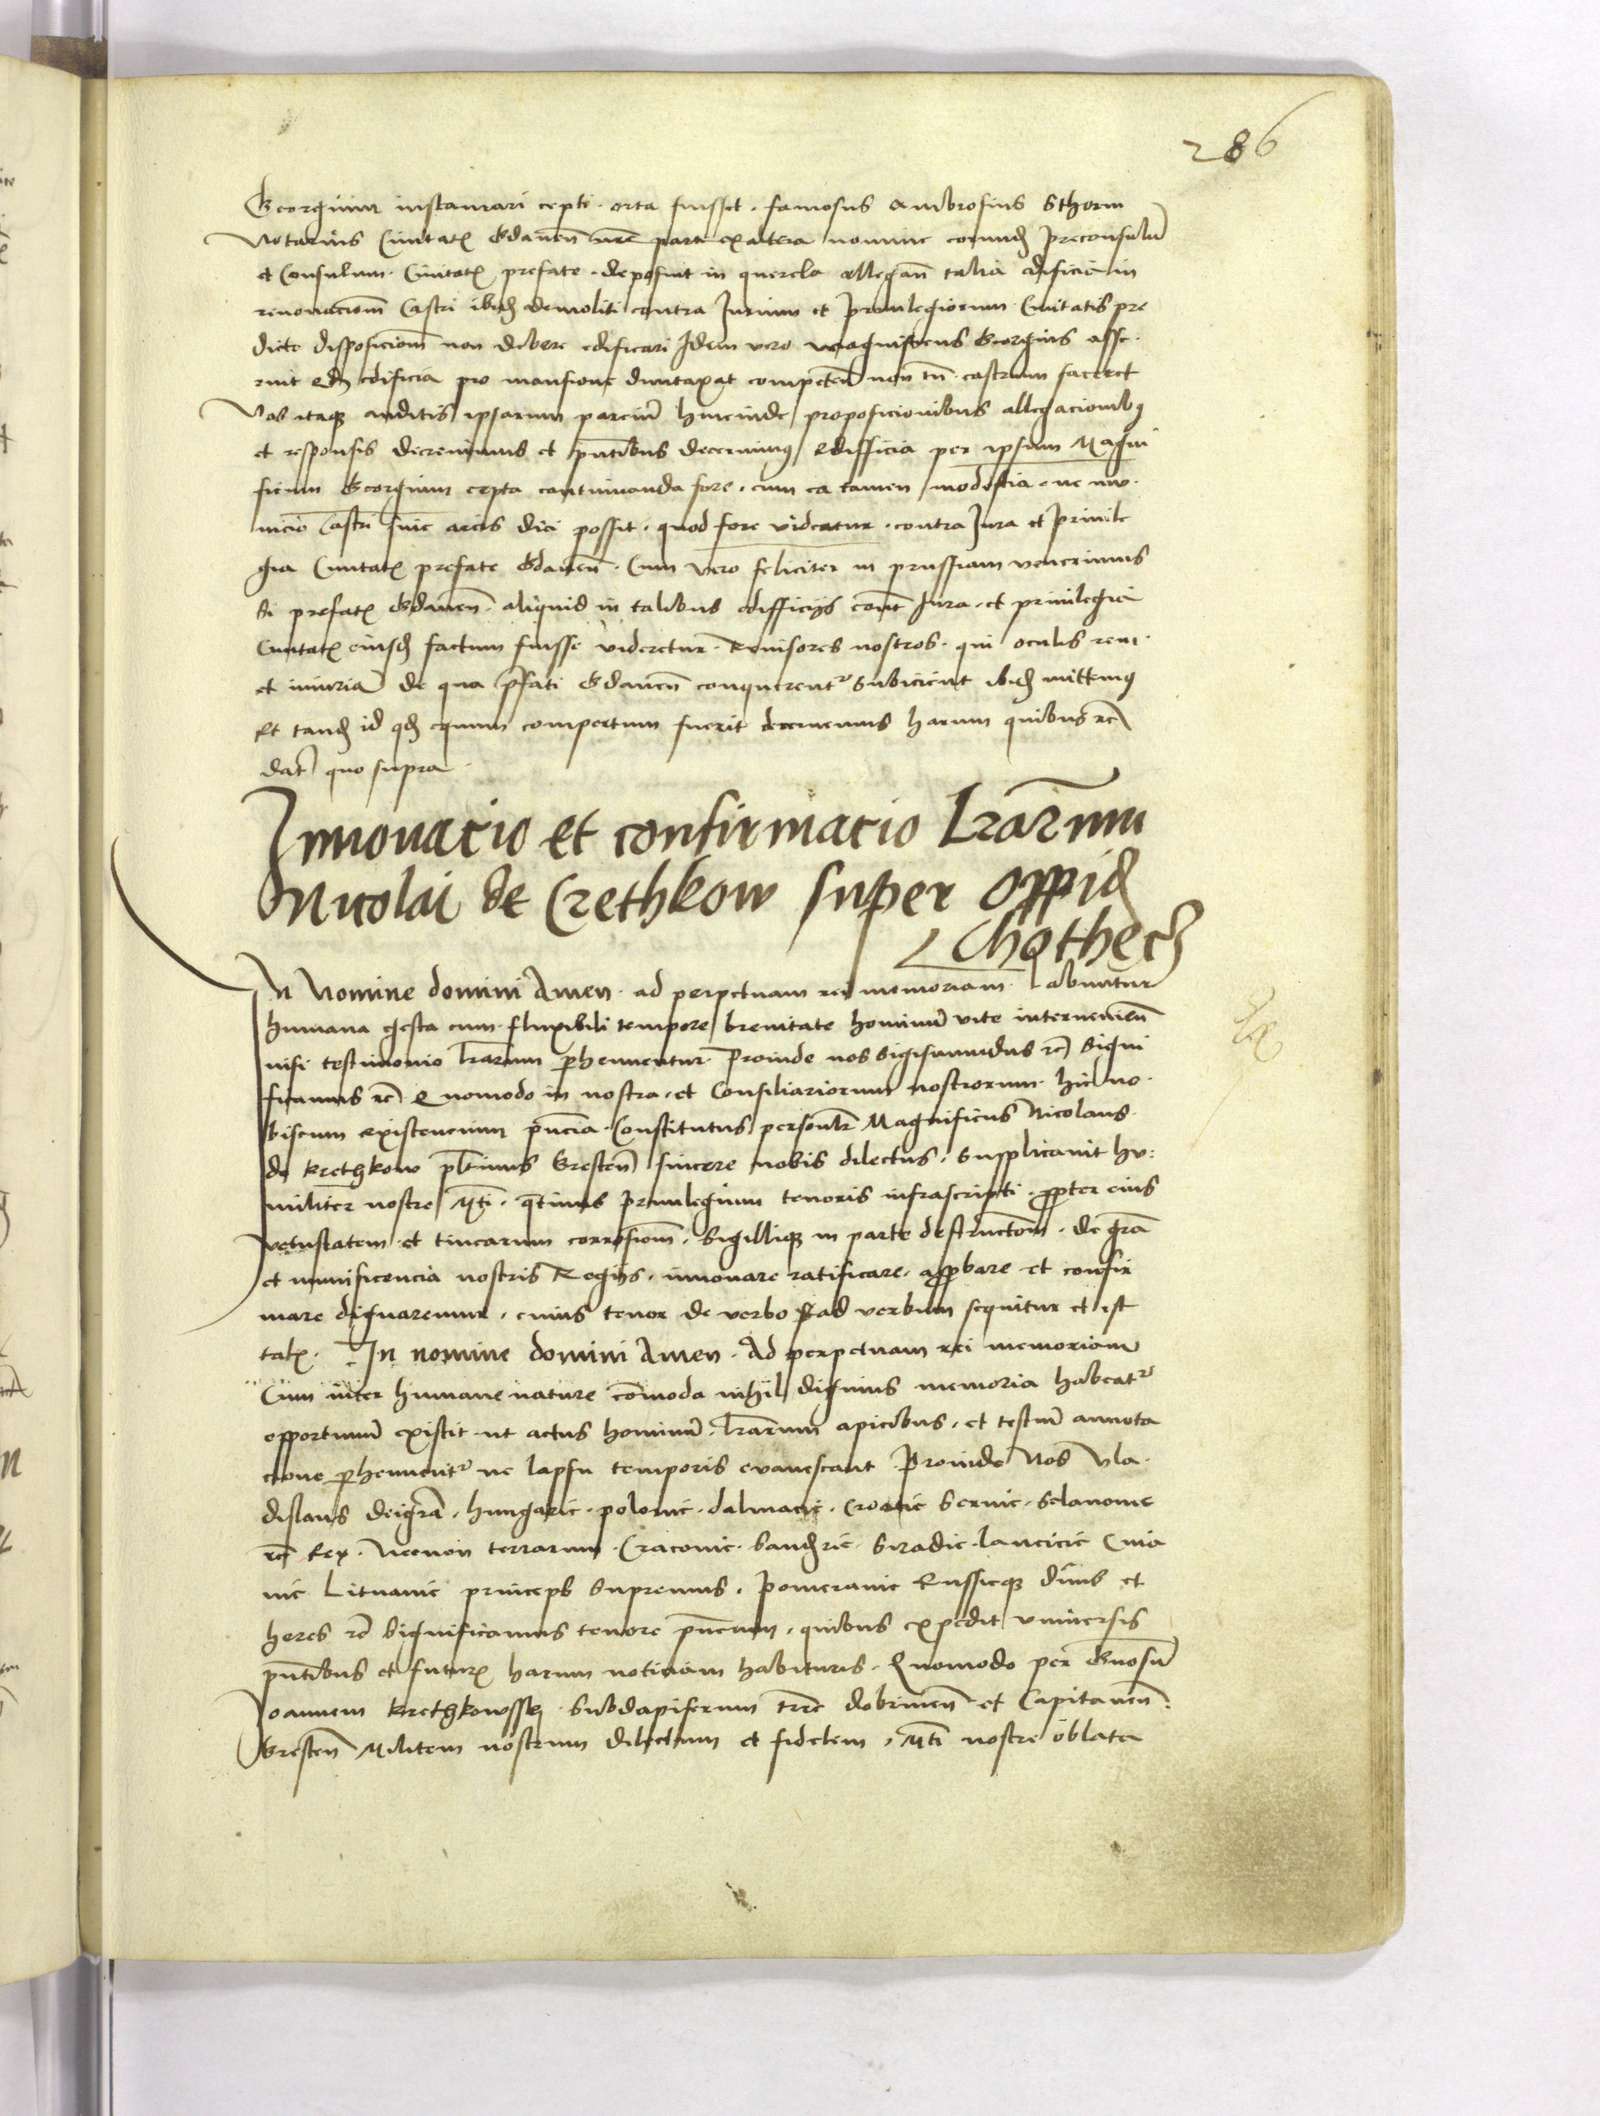 286
Georgium instaurari cepti · orta fuisset · famosus Ambrosius Sthorm
Notarius Civitat̃ Gdaneñ parte ex altera nomine eorund̃ preconsulũ
et Consulum · Civitat̃ prefate · deposuit in querela allegañ talia edificia in
renovacioñ Castri ibid̃ demoliti contra Jurium et privilegiorum Civitatis pre
dicte disposicioñ non debere edificari Idem vero magnificus Georgius asse·
ruit ed̃ edificia pro mansione duntaxat competeñ non tñ castrum faceret
Nos itaq̃ auditis ipsarum parciũ hincinde proposicionibus allegacionibꝫ
et responsis decrevimus et pñtibus decernimꝫ edifficia per ipsum Magni
ficum Georgium cepta continuanda fore · cum ea tamen modestia · ne
Castri sive arcis dici possit · quod fore videatur · contra Jura et privile
gia Civitat̃ prefate Gdaneñ · Cum vero feliciter in prussiam venerimus
Si prefat̃ Gdaneñ · aliquid in talibus edifficijs cont̃ Jura · et privilegia
Civitat̃ eiusd̃ factum fuisse videretur · Revisores nostros · qui oculis rem ·
et iniuriã de qua p̃fati Gdaneñ conquerentʳ subicient ibid̃ mittemꝫ
Et tand̃ id qd̃ equum compertum fuerit decernemus harum quibus rc̃
dat̃ quo supra ·
Innovacio et confirmacio Lrãrum
Nicolai de Crethkow super oppid̃
Chothecz
In Nomine domini Amen · ad perpetuam rei memoriam · Labuntur
humana gesta cum · fluxibili tempore brevitate hominũ vite intervenieñ
nisi testimonio lrãrum perhennentur · Proinde nos Sigismundus rc̃ Signi
ficamus rc̃ Quomodo in nostra · et Consiliariorum nostrorum · hic no·
biscum existencium pñcia · Constitutus personlr̃ Magnificus Nicolaus ·
de Krethkow pltinus Bresteñ sincere nobis dilectus · Supplicavit hu:
militer nostre Mti · q̃tinus privilegium tenoris infrascripti · propter eius
vetustatem · et tinearum corrosioñ · Sigillique in parte destructoñ · de grã
et munificencia nostris Regijs · innovare ratificare · approbare et confir
mare dignaremur · cuius tenor de verbo ad verbum sequitur et est
tal̃ · In nomine domini Amen · Ad perpetuam rei memoriam
Cum inter humane nature cõmoda nihil dignius memoria habeatʳ
opportunũ existit ut actus hominũ · lrãrum apicibus · et testiũ annota
cione perhennentʳ ne lapsu temporis evanescant Proinde Nos Vla·
dislaus dei grã · hungarie · polonie · dalmacie · Croatie Servie · Sclavonie
rc̃ Rex · Necnon terrarum · Cracovie · Sand̃rie · Siradie · Lancicie Cuia
vie Lituanie princeps supremus · Pomeranie Russieq̃ dñus et
heres rc̃ Significamus tenore pñcium · quibus expedit universis
pñtibus et futur̃ harum noticiam habituris · Quomodo per Gnosũ
Joannem Krethkowsky · Subdapiferum trre dobrineñ et Capitaneũ ·
Bresteñ Militem nostrum dilectum et fidelem · Mti nostre oblata